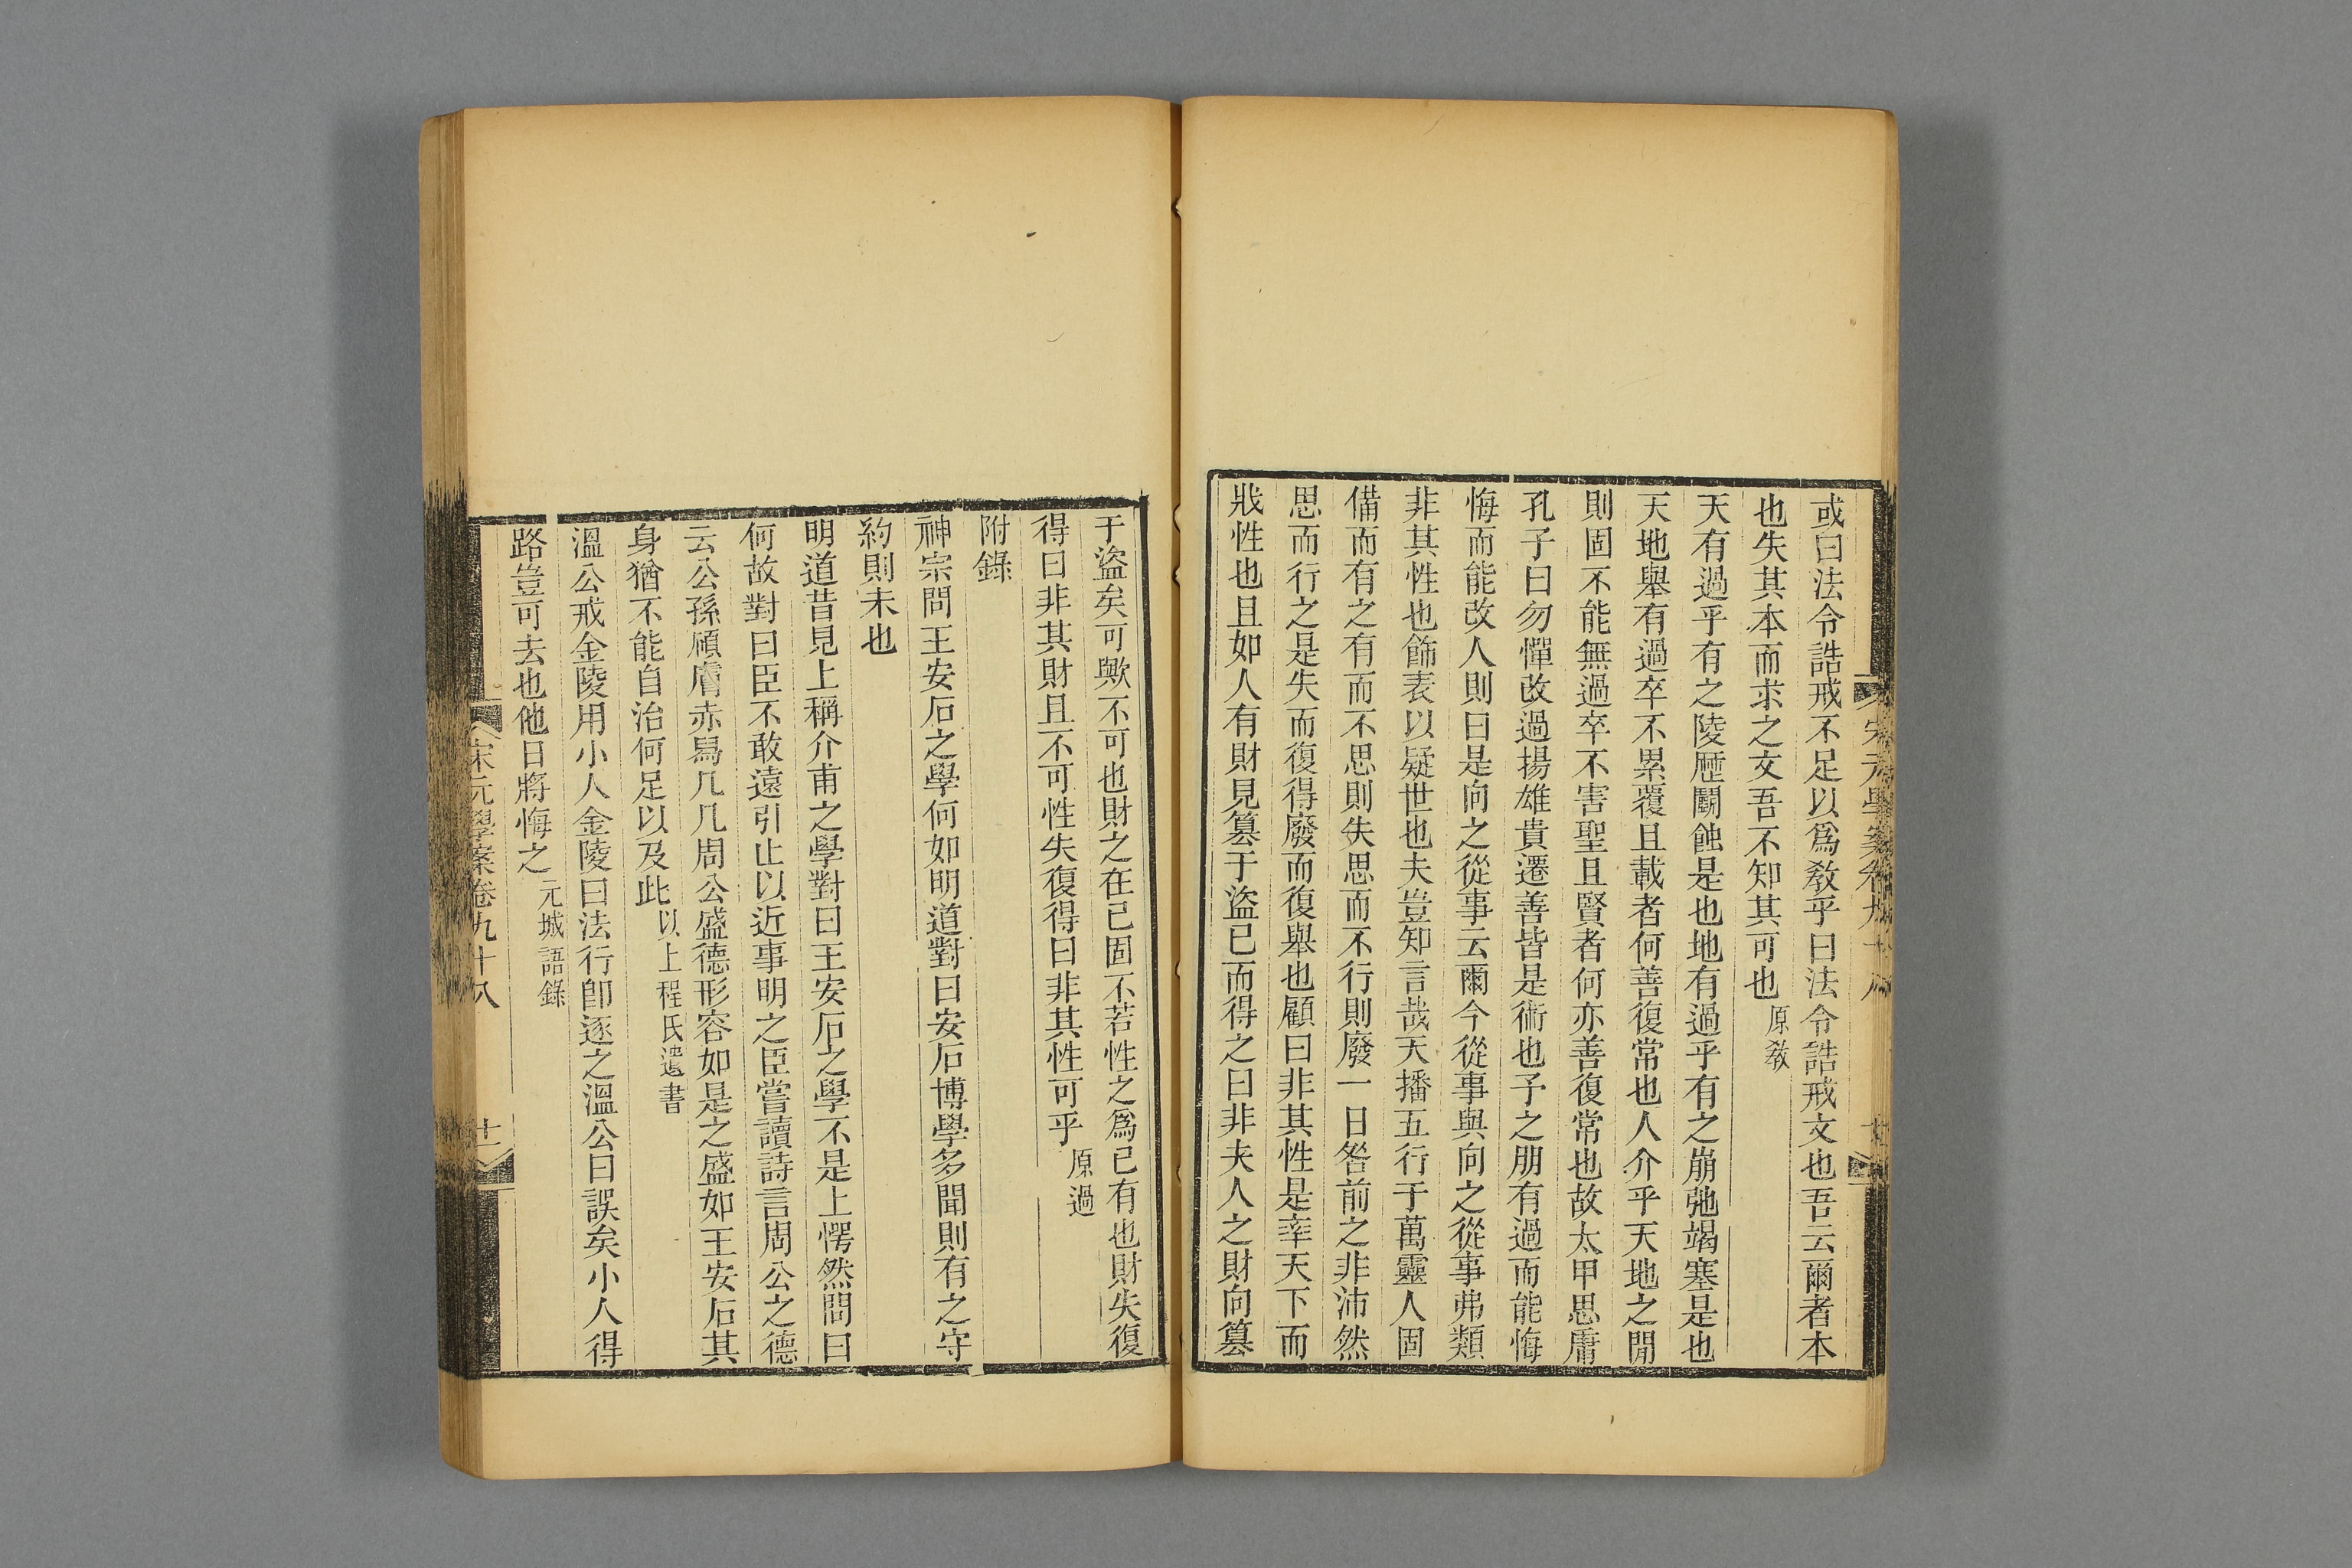 宋元學案卷九十八
或曰法令誥戒不足以爲敎乎曰法令誥戒文也吾云爾者本
也失其本而求之文吾不知其可也原敎
天有過乎有之陵歷鬭蝕是也地有過乎有之崩弛竭塞是也
天地舉有過卒不累覆且載者何善復常也人介乎天地之閒
則固不能無過卒不害聖且賢者何亦善復常也故太甲思庸
孔子曰勿憚改過揚雄貴遷善皆是術也予之朋有過而能悔
悔而能改人則曰是向之從事云爾今從事與向之從事弗類
非其性也飾表以疑世也夫豈知言哉天播五行于萬靈人固
備而有之有而不思則失思而不行則廢一日咎前之非沛然
思而行之是失而復得廢而復舉也顧曰非其性是率天下而
戕性也且如人有財見篡于盜已而得之曰非夫人之財向篡
于盜矣可歟不可也財之在已固不若性之爲已有也財失復
得曰非其財且不可性失復得曰非其性可乎原過
附錄
神宗問王安石之學何如明道對曰安石博學多聞則有之守
約則未也
明道昔見上稱介甫之學對曰王安石之學不是上愕然問曰
何故對曰臣不敢遠引止以近事明之臣嘗讀詩言周公之德
云公孫碩膚赤舃几几周公盛德形容如是之盛如王安石其
身猶不能自治何足以及此以上程氏遺書
溫公戒金陵用小人金陵曰法行卽逐之溫公曰誤矣小人得
路豈可去也他日將悔之元城語錄
宋元學案卷九十八